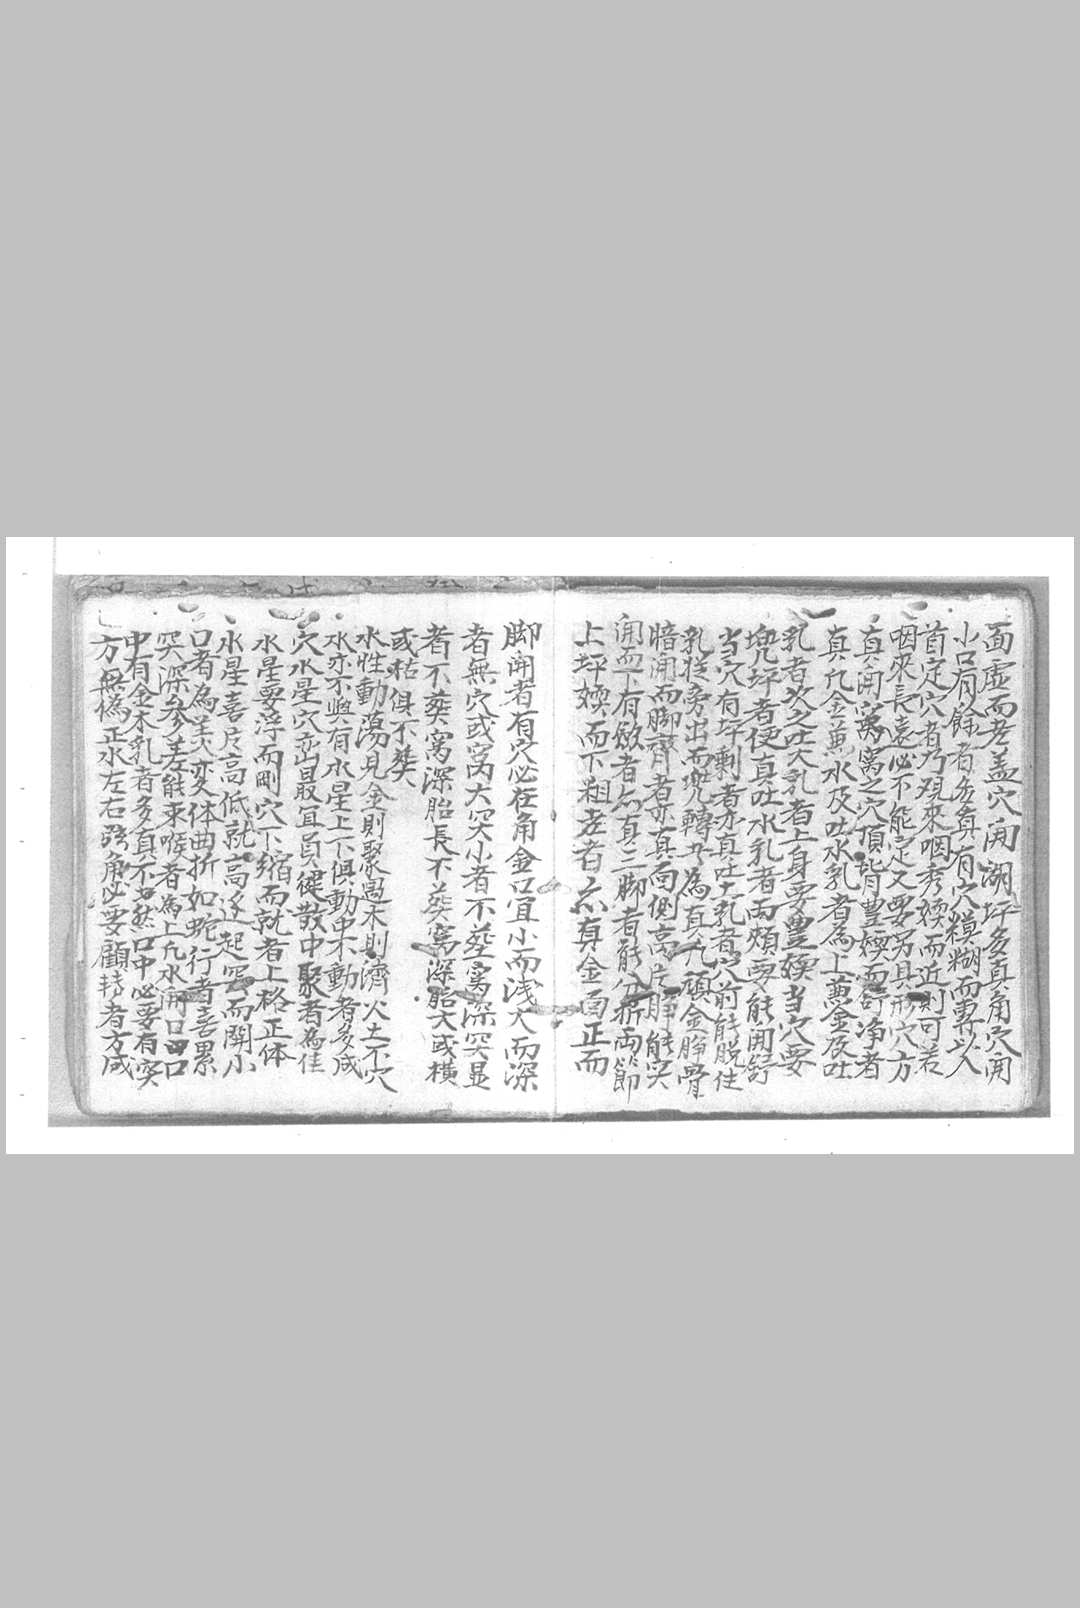 面虛而老盖穴開湖坪多真角穴開
小口有餘者多真有穴糢糊而
首定穴者乃观來咽秀嫩而近則可若
咽來長遠必不能定又要另具形穴方
真開窩窩之穴頂皆豊嫩而舒净者
真凢金兼水及吐水乳者為上兼金及吐
乳者次之吐大乳者上身要豊嫩当穴要
坪者便真吐水乳者両頰要能開舒
当穴有坪剩者亦真吐土乳者穴前能脱佳
乳從旁出而轉者為真凢頑金肿骨
暗開而脚齊者亦真面側高片肿能突
開面下有者亦真三脚者能分折両節
上坪嫩而下粗老者亦真金面正而
脚開者有穴必在角金口宜小而浅大而深
者無穴或窝大突小者不葬窝深突显
者不葬窩深胎長不葬窩深胎大或横
或粘俱不葬
水性動蕩見金則聚遇木則濟火土不穴
水亦不與有水星上下俱動中不動者多成
穴水星穴恋最宜員健散中聚者為佳
水星要浮而剛穴下縮而就者上格正体
水星喜片高低就高浮起窩而開小
口者為美变体曲折如蛇行者喜累
突深参差能束喉者為上凢水開口口
中有金木乳者多真不然口中必要有突
方無偽正水左右角必要顧轉者方成